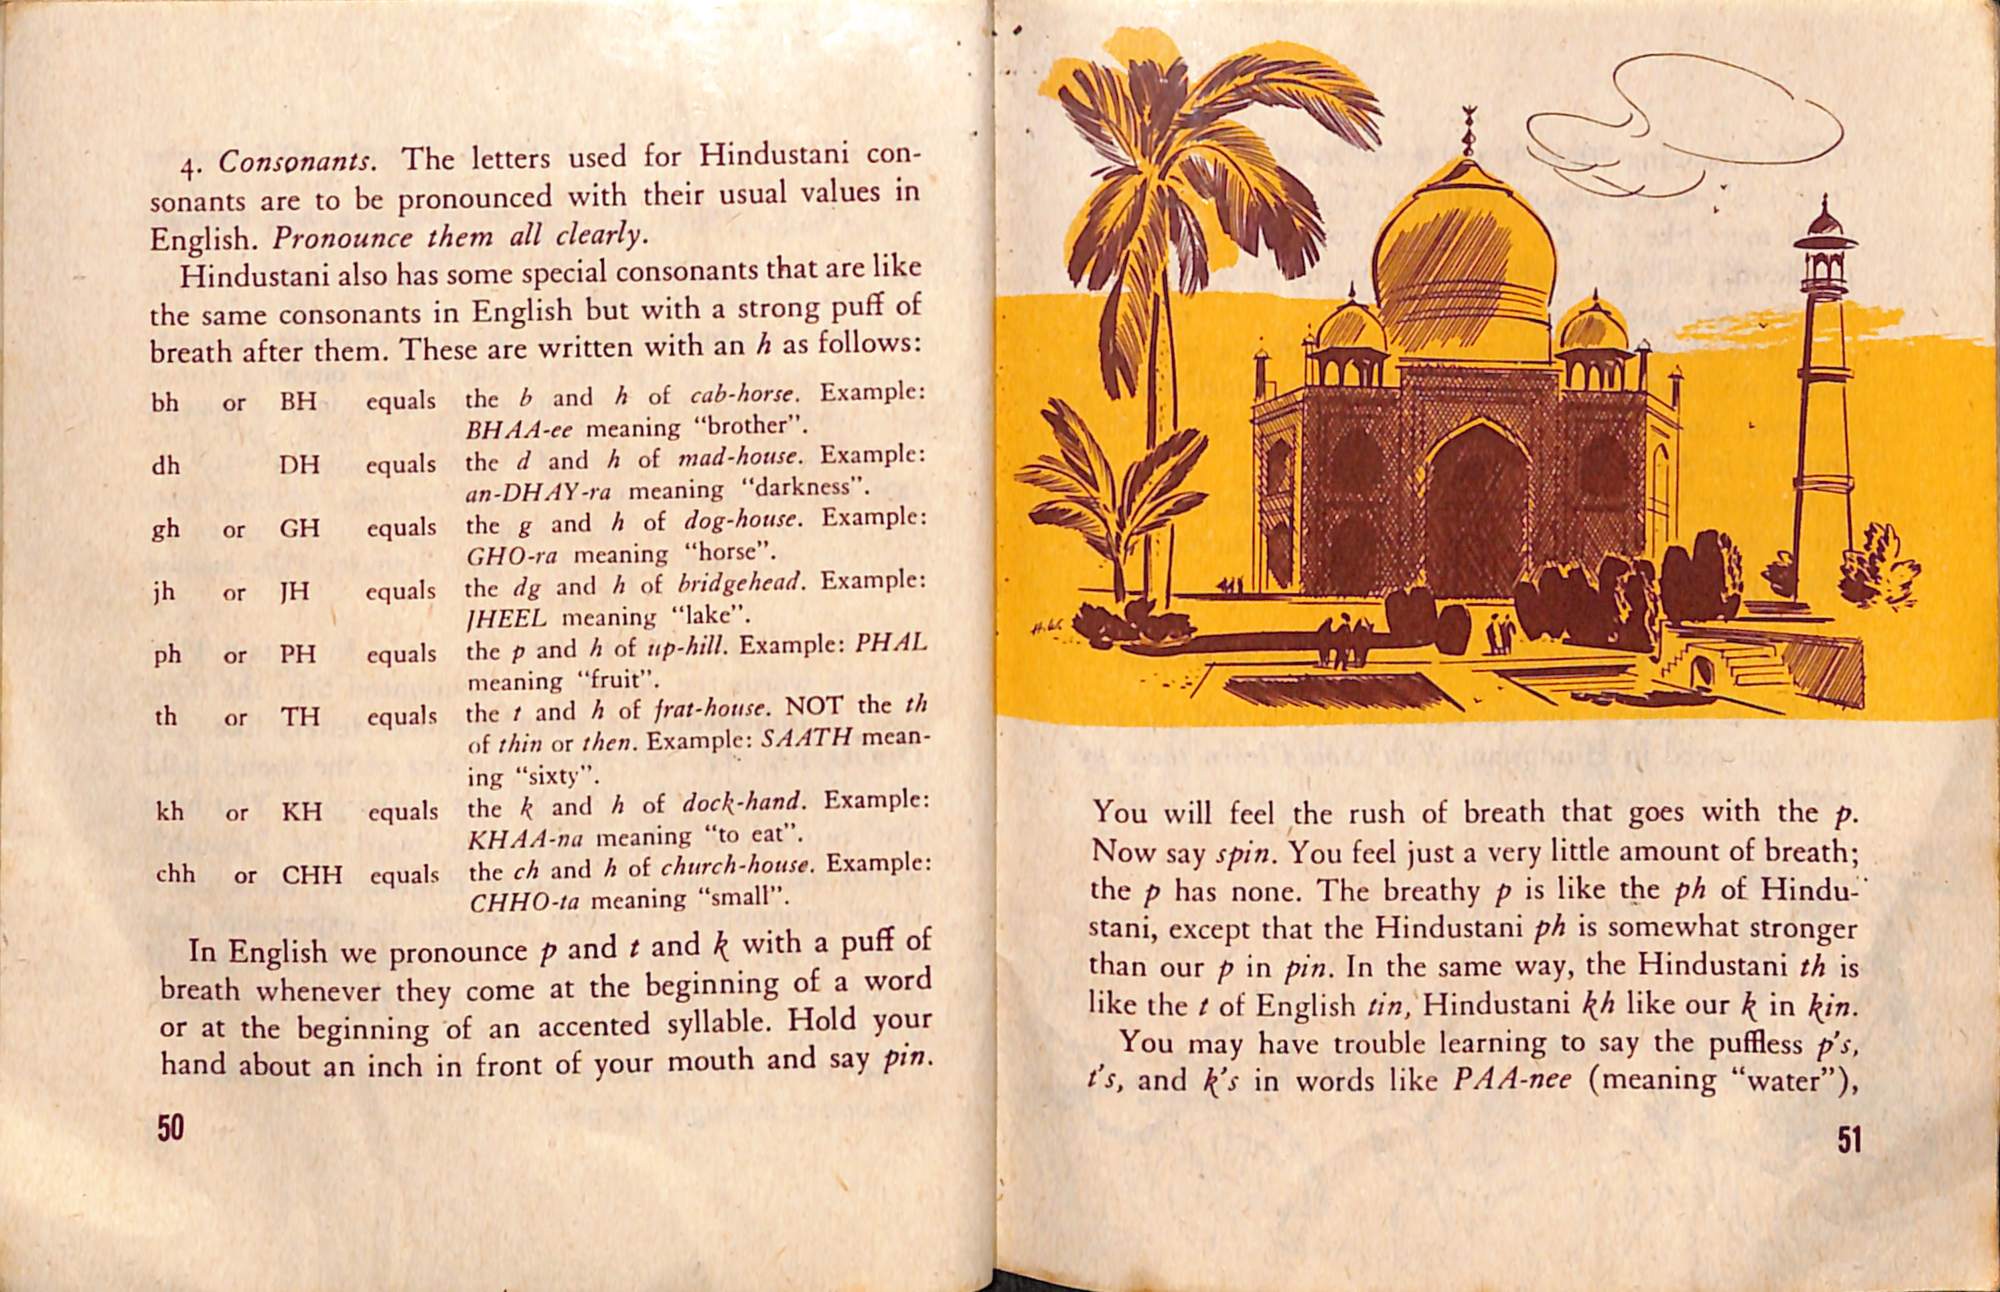 4. Consonants. The letters used for Hindustani con-
sonants are to be pronounced with their usual values in
English. Pronounce them all clearly.
Hindustani also has some special consonants that are like
the same consonants in English but with a strong puff of
breath after them. These are written with an h as follows:
bh or BH equals the b and h of cab-horse. Example:
BHAA-ee meaning "brother".
dh DH equals the d and h of mad-house. Example:
an-DHAY-ra meaning "darkness".
gh or GH equals the g and h of dog-house. Example:
GHO-ra meaning "horse".
jh or JH equals the dg and h of bridgehead. Example:
JHEEL meaning "lake".
ph or PH equals the p and h of up-hill. Example: PHAL
meaning "fruit".
th or TH equals the t and h of frat-house. NOT the th
of thin or then. Example: SAATH mean-
ing "sixty".
kh or KH equals the k and h of dock-hand. Example:
KHAA-na meaning "to eat".
chh or CHH equals the ch and h of church-house. Example:
CHHO-ta meaning "small".
In English we pronounce p and t and k with a puff of
breath whenever they come at the beginning of a word
or at the beginning of an accented syllable. Hold your
hand about an inch in front of your mouth and say pin.
50
You will feel the rush of breath that goes with the p.
Now say spin. You feel just a very little amount of breath;
the p has none. The breathy p is like the ph of Hindu-
stani, except that the Hindustani ph is somewhat stronger
than our p in pin. In the same way, the Hindustani th is
like the t of English tin, Hindustani kh like our k in kin.
You may have trouble learning to say the puffless p's,
t's, and k's in words like PAA-nee (meaning "water"),
51